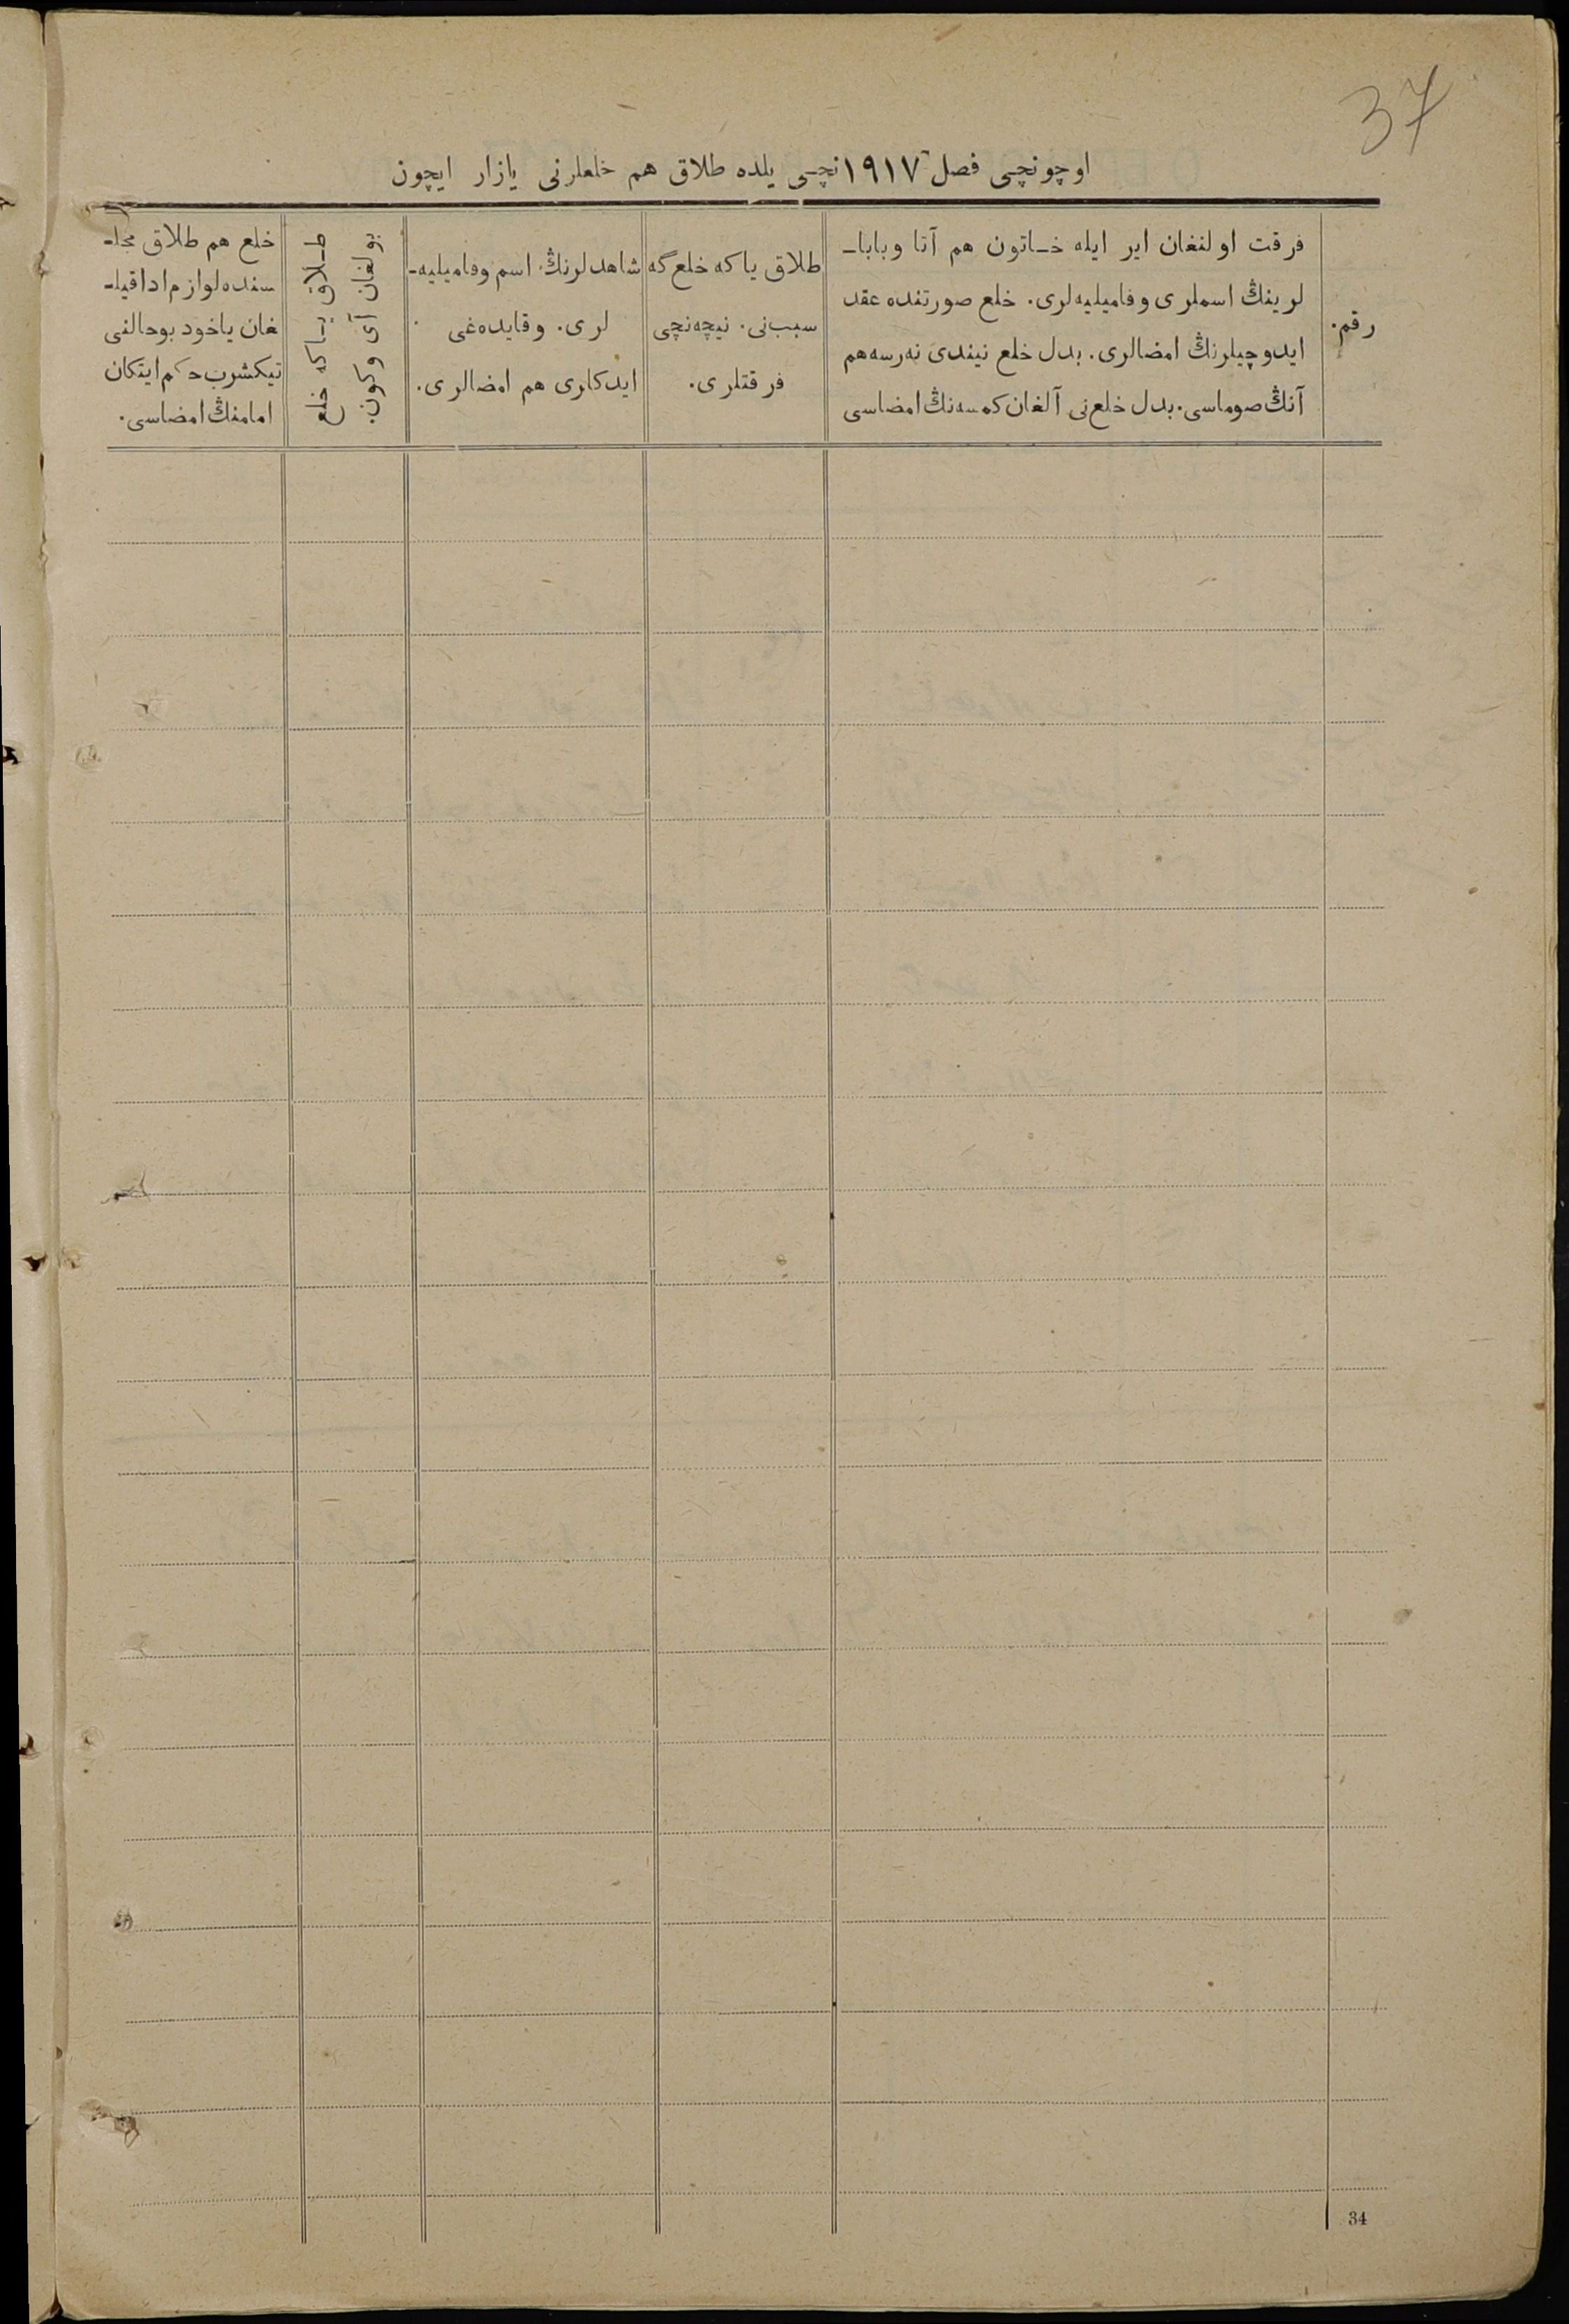 37
اوچونچی فصل ١٩١٧نچی یلده طلاق هم خلعلرنی یازار ایچون
رقم.
فرقت اولنغان ایر ایله خاتون هم آتا وبابا-
لرینڭ اسملری وفامیلیه‌لری. خلع صورتنده عقد
ایدوچیلرنڭ امضالری. بدل خلع نیندی نه‌رسه هم
آنڭ صوماسی. بدل خلع‌نی آلغان کمسه‌نڭ امضاسی
طلاق یاکه خلع گه
سبب‌نی. نیچه‌نچی
فرقتلری.
شاهدلرنڭ اسم وفامیلیه-
لری. وقایده‌غی
ایدکاری هم امضالری.
طلاق یاکه خلع
بولغان آی وکون.
خلع هم طلاق مجلـ
سنده لوازم ادا قیلـ
غان یاخود بوحالنی
تیکشرب حکم ایتکان
امامنڭ امضاسی.
34